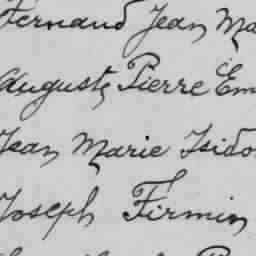 Fernand Jean Ma
Auguste Pierre Em
Jean Marie Isido
Joseph Firmin